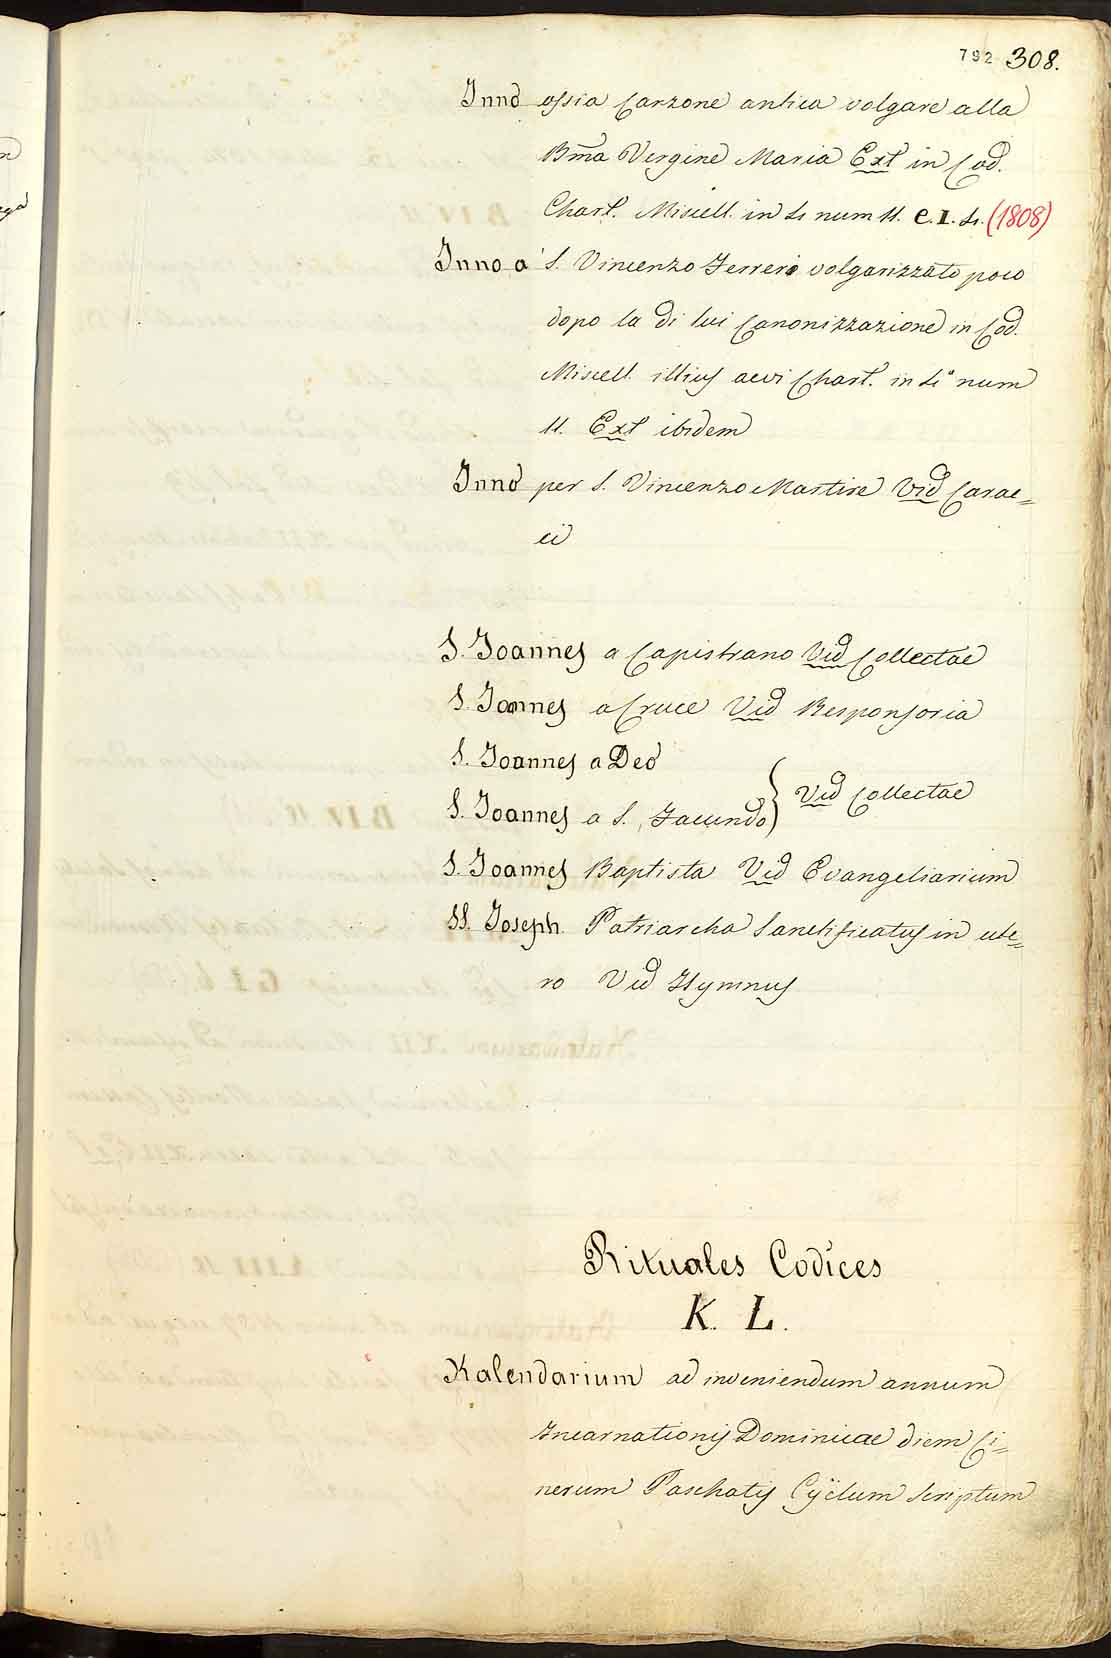 792 308.
Inno ossia Canzone antica volgare alla
Bma Vergine Maria Ext in Cod.
Chart. Miscell. in 4 num 11. e. I. 4. (1808)
Inno a S. Vincenzo Ferreri volgarizzato poco
dopo la di lui Canonizzazione in Cod.
Miscell. illius aevi Chart. in 4º num
11. Ext ibidem
Inno per S. Vincenzo Martire Vid Carae=
ii
S. Joannes a Capistrano Vid Collectae
S. Joannes a Cruce Vid Responsoria
S. Joannes a Deo
S. Joannes a S. Facundo } Vid Collectae
S. Joannes Baptista Vid Evangeliarium
SS. Joseph. Patriarcha Sanctificatus in ute=
ro Vid Hymnus
Rituales Codices
K. L.
Kalendarium ad inveniendum annum
Incarnationis Dominicae diem Ci=
nerum Paschatis Cyclum scriptum